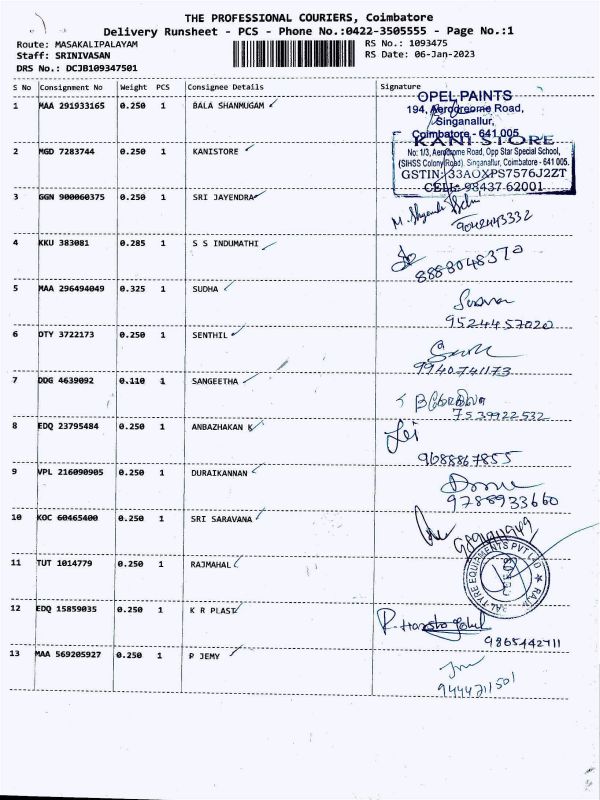 THE PROFESSIONAL COURIERS, Coimbatore
Delivery Runsheet - PCS - Phone No.:0422-3505555 - Page No.:1
Route: MASAKALIPALAYAM
RS No.: 1093475
Staff: SRINIVASAN
RS Date: 06-Jan-2023
DRS No.: DCJB109347501
S No Consignment No Weight PCS Consignee Details Signature
1 MAA 291933165 0.250 1 BALA SHANMUGAM
OPEL PAINTS
194, Aerodreome Road,
Singanallur,
Coimbatore - 641 005
2 MGD 7283744 0.250 1 KANISTORE
KANI STORE
No: 1/3, Aerodrome Road, Opp Star Special School,
(SIHSS Colony Road), Singanallur, Coimbatore - 641 005.
GSTIN: 33AOXPS7576J2ZT
CELL: 98437 62001
3 GGN 900060375 0.250 1 SRI JAYENDRA
9042443332
4 KKU 383081 0.285 1 S S INDUMATHI
8888048370
5 MAA 296494049 0.325 1 SUDHA
9524457020
6 DTY 3722173 0.250 1 SENTHIL
9940741173
7 DDG 4639092 0.110 1 SANGEETHA
7539922532
8 EDQ 23795484 0.250 1 ANBAZHAKAN K
9688867855
9 VPL 216090905 0.250 1 DURAIKANNAN
9788933660
10 KOC 60465400 0.250 1 SRI SARAVANA
11 TUT 1014779 0.250 1 RAJMAHAL
TYRE EQUIPMENTS PVT LTD
12 EDQ 15859035 0.250 1 K R PLAST
9865442711
13 MAA 569205927 0.250 1 P JEMY
9444711501